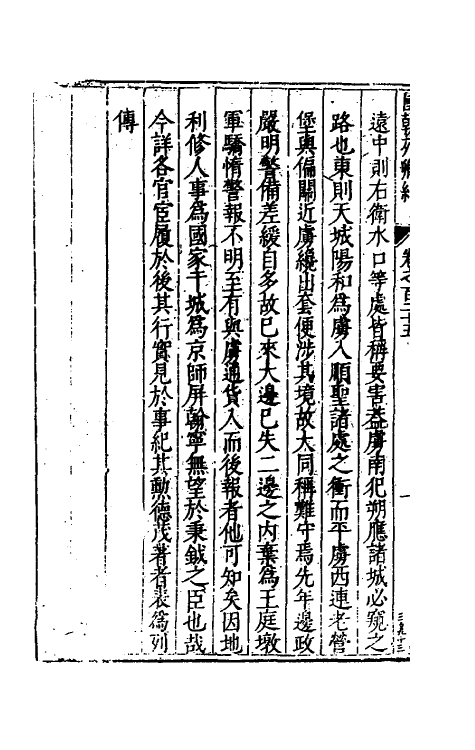 卷之百二十五
遠中則右衛水口等處皆稱要害葢虜南犯朔應諸城必窺之
路也東則天城陽和為虜入順聖諸處之衝而平虜西連老營
堡與偏關近虜纔出套便涉其境故大同稱難守焉先年邊政
嚴明警備差緩自多故已來大邊已失二邊之內棄為王庭墩
軍驕惰警報不明至有與虜通貨入而後報者他可知矣因地
利修人事為國家干城為京師屏翰寧無望於秉鉞之臣也哉
今詳各官宦履於後其行實見於事紀其勳德茂著者表為列
傳